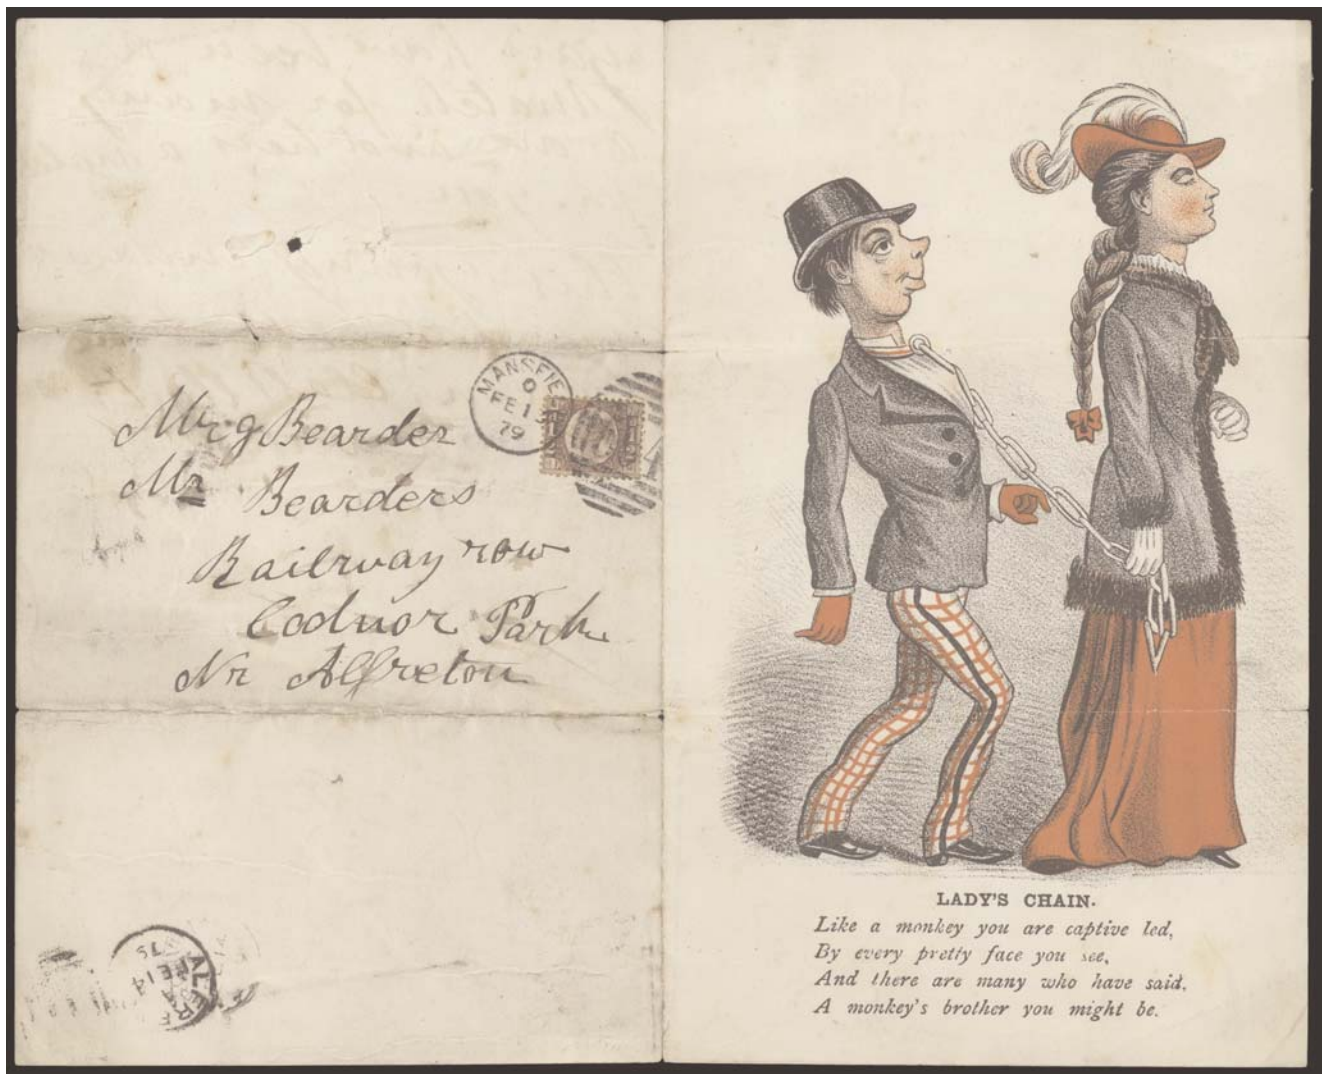 Mr g Bearder
Mr Bearders
Railway row
Codnor Park
Nr Alfreton
MANSFIE
O
FE 1
79
ALFR
A
FE 14
LADY'S CHAIN.
Like a monkey you are captive led,
By every pretty face you see,
And there are many who have said,
A monkey's brother you might be.